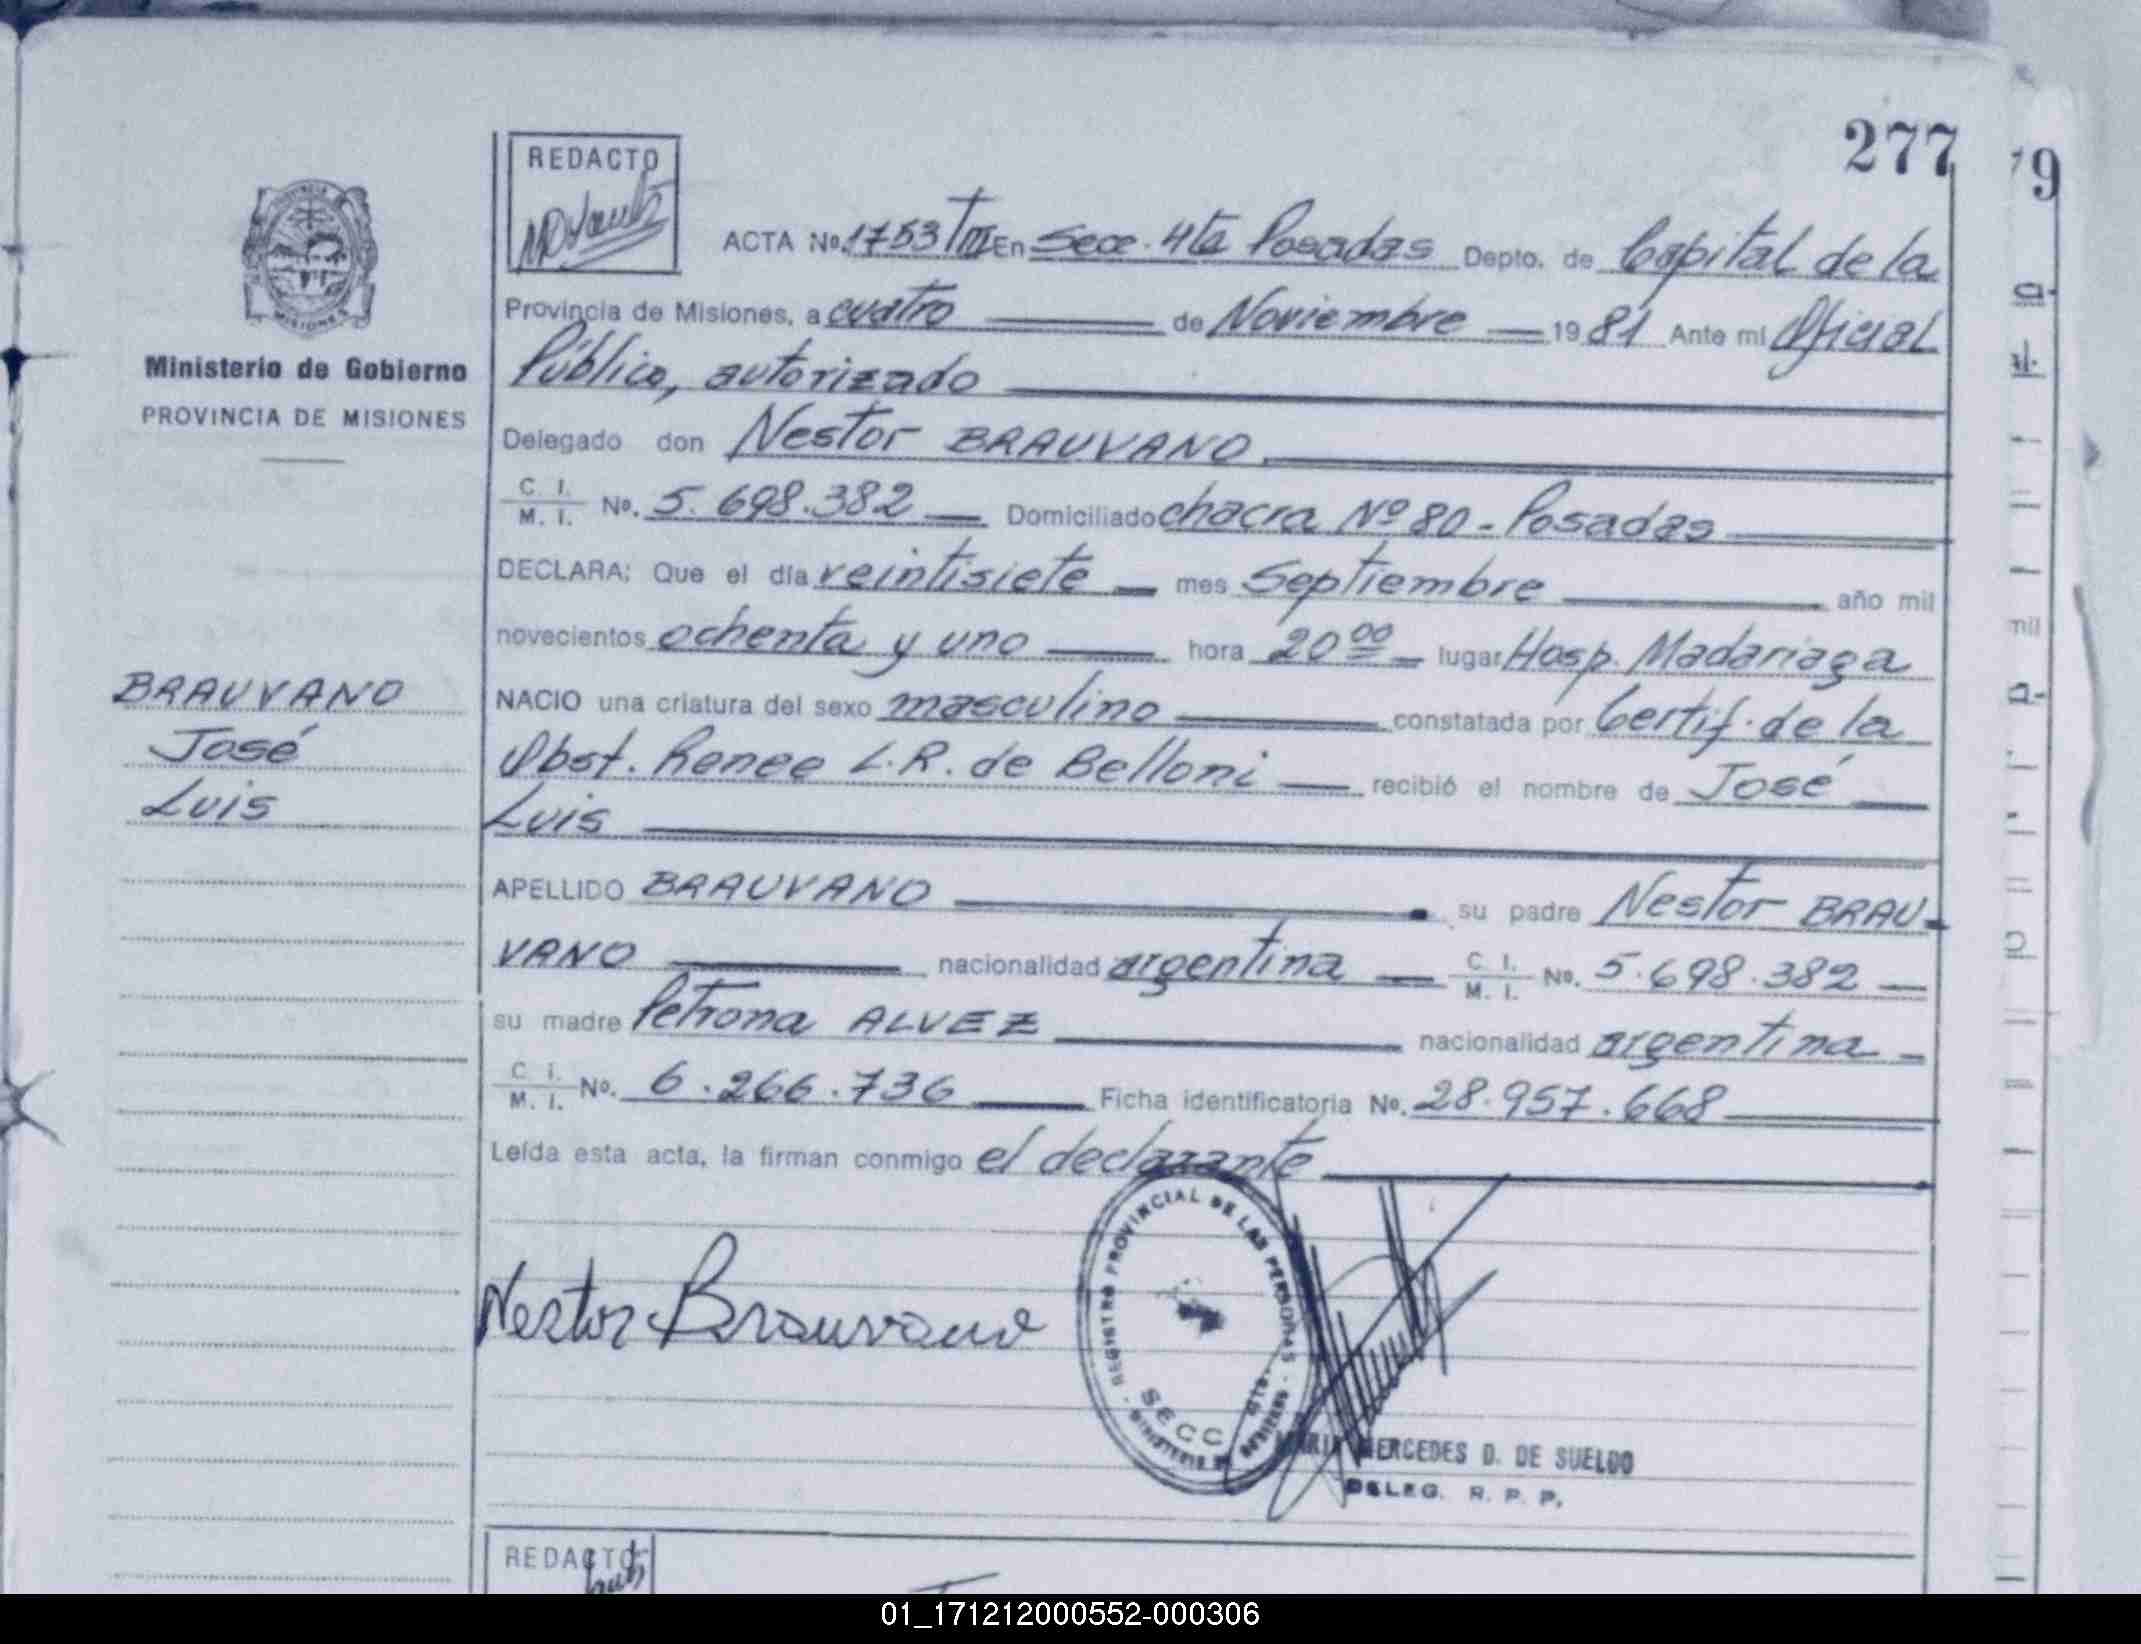 277
79
REDACTO
ACTA No. 1753 TIII En Secc. 4ta Posadas Depto. de Capital de la
Provincia de Misiones, a cuatro de Noviembre 1981 Ante mi Oficial
Público, autorizado
Ministerio de Gobierno
PROVINCIA DE MISIONES
Delegado don Nestor BRAUVANO
C. I. / M. I. No. 5.698.382 Domiciliado chacra Nº 80 - Posadas
DECLARA: Que el día veintisiete mes Septiembre año mil
novecientos ochenta y uno hora 20 00 lugar Hosp. Madariaga
BRAUVANO
José
Luis
NACIO una criatura del sexo masculino constatada por Certif. de la
Obst. Renee L.R. de Belloni recibió el nombre de José
Luis
APELLIDO BRAUVANO su padre Nestor BRAU-
VANO nacionalidad argentina C. I. / M. I. No. 5.698.382
su madre Petrona ALVEZ nacionalidad argentina
C. I. / M. I. No. 6.266.736 Ficha identificatoria No. 28.957.668
Leída esta acta, la firman conmigo el declarante
Nestor Brauvano
REGISTRO PROVINCIAL DE LAS PERSONAS
SECC
MARIA MERCEDES D. DE SUELDO
DELEG. R. P. P.
REDACTO
01_171212000552-000306